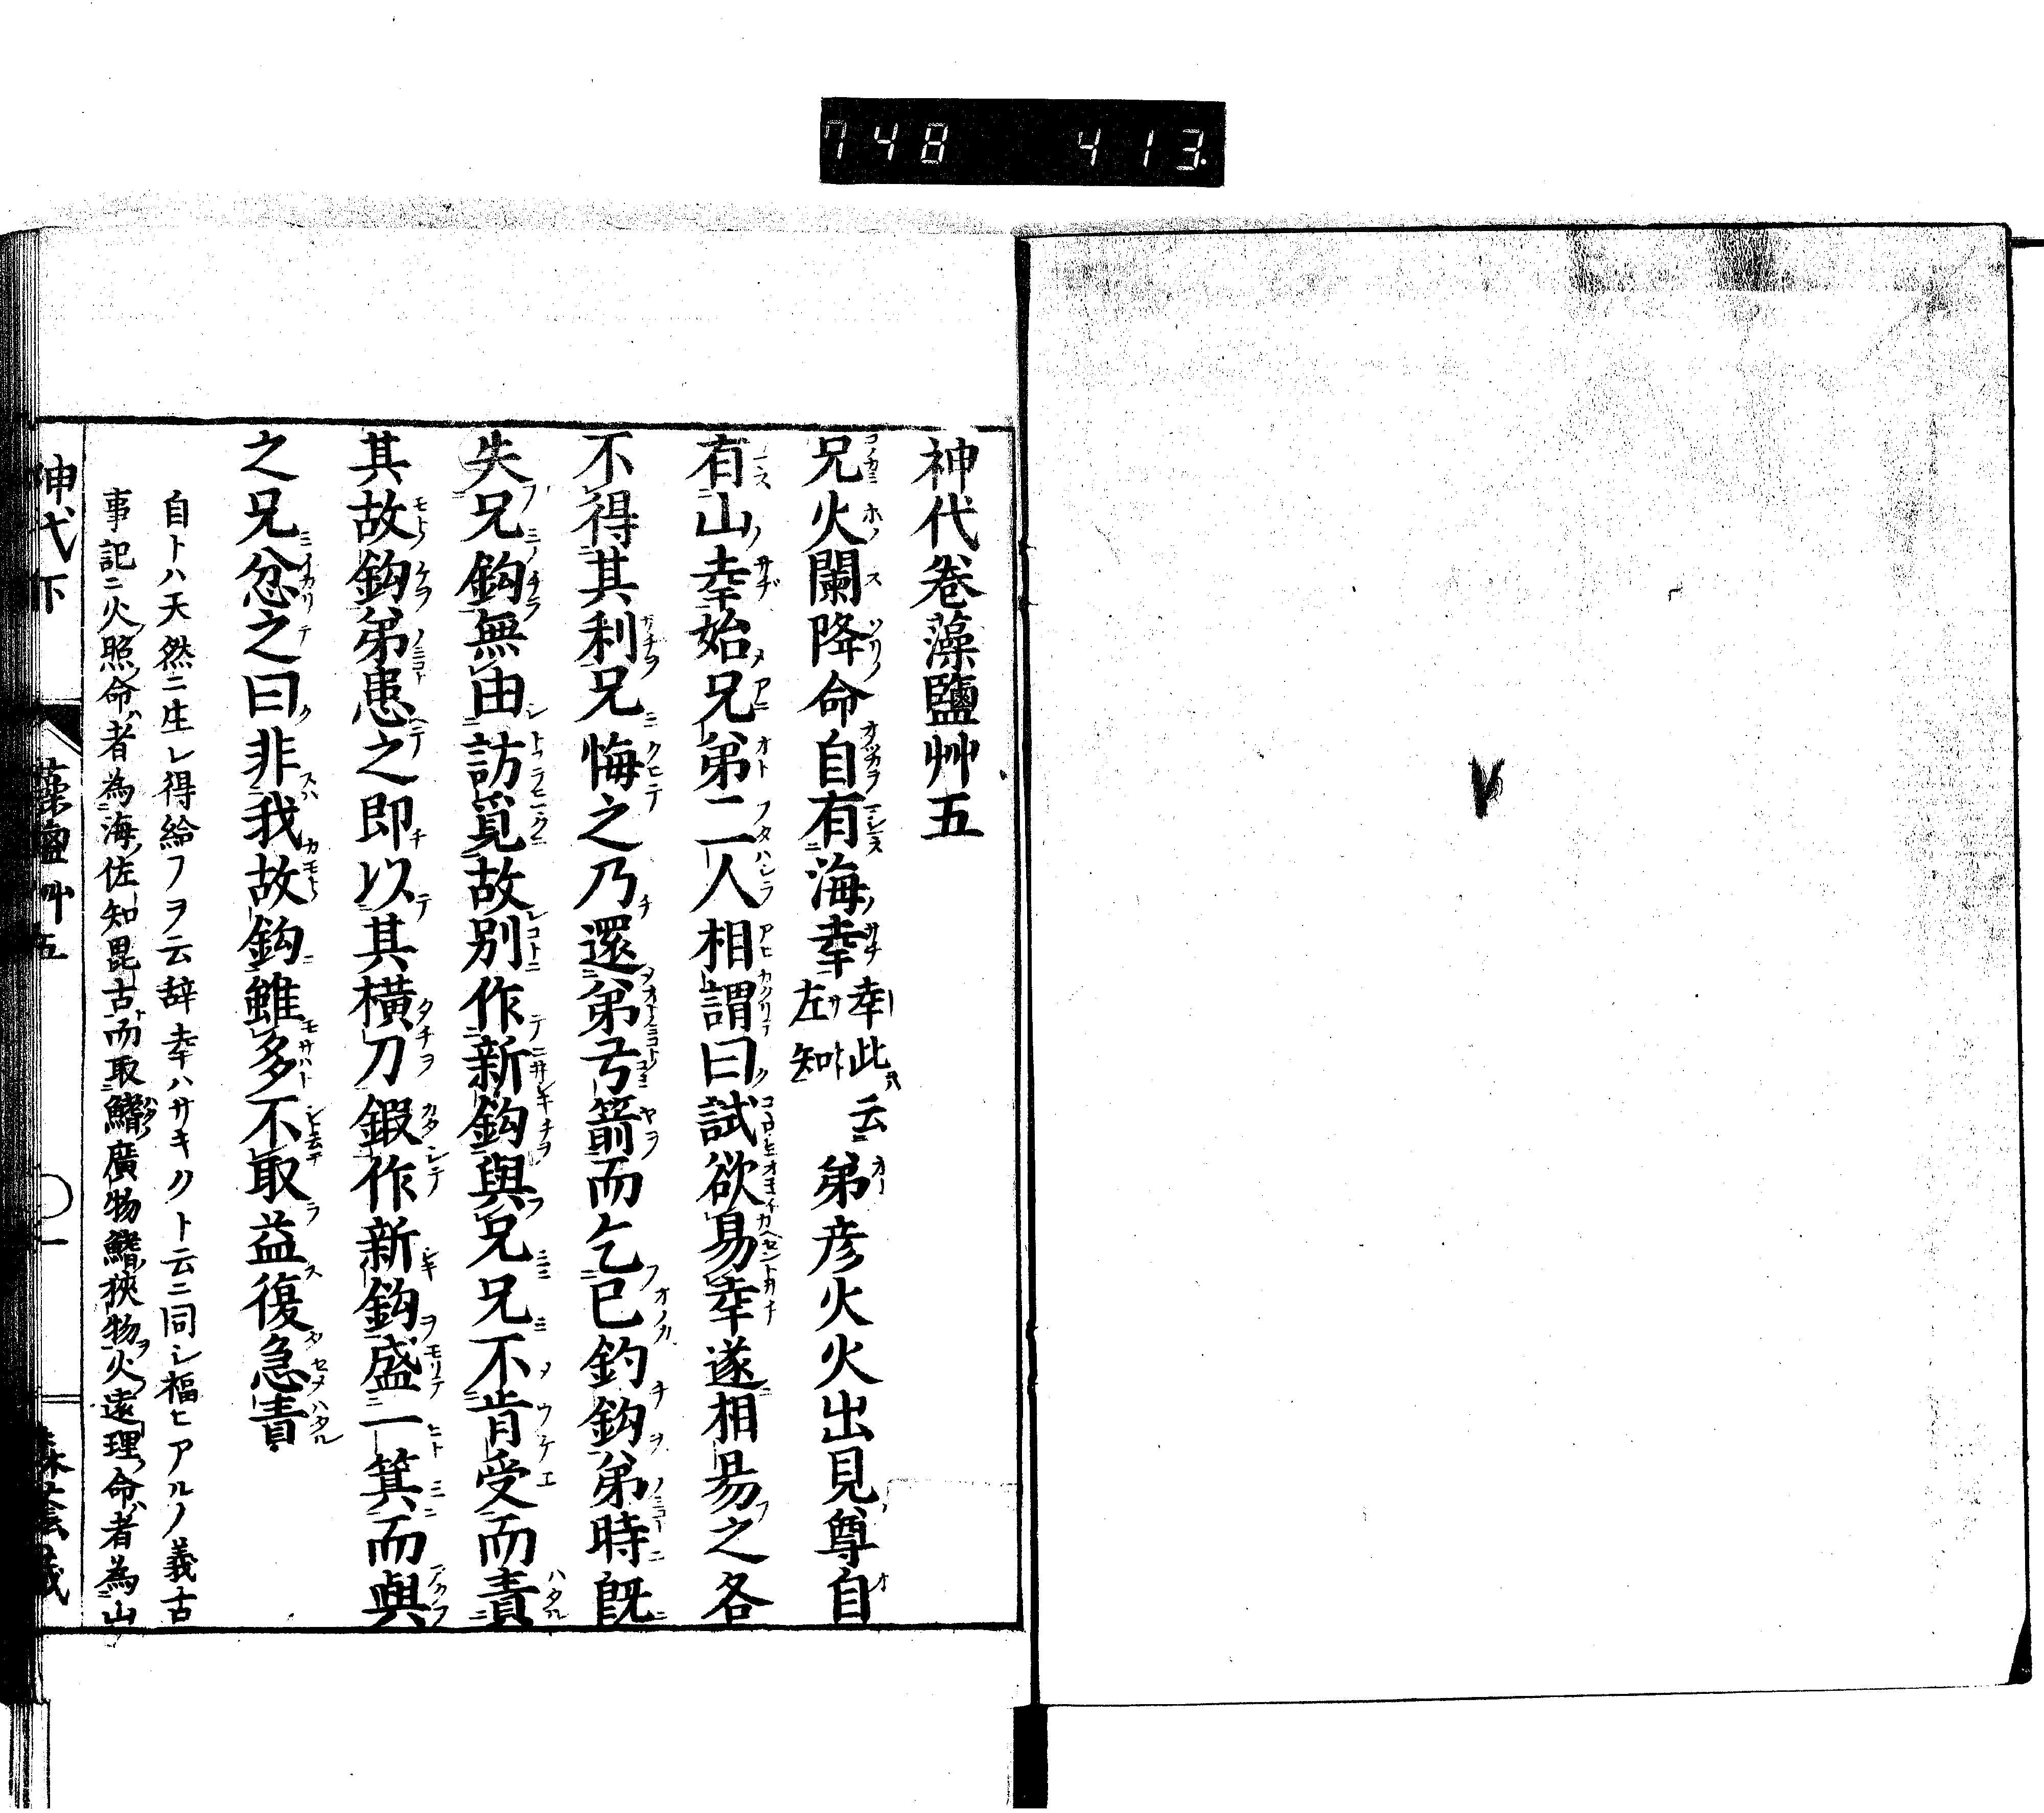 748 413
神代巻藻鹽艸五
兄火闌降命自有海幸幸此云左知弟彦火火出見尊自
有山幸始兄弟二人相謂曰試欲易幸遂相易之各
不得其利兄悔之乃還弟弓箭而乞己釣鈎弟時既
失兄鈎無由訪覓故別作新鈎與兄兄不肯受而責
其故鈎弟患之即以其横刀鍜作新鈎盛一箕而與
之兄忿之曰非我故鈎雖多不取益復急責
自トハ天然ニ生レ得給フヲ云辞幸ハサキクト云ニ同シ福ヒアルノ義古
事記ニ火照命者為海佐知毘古而取鰭廣物鰭狭物火遠理命者為山
神代下 藻鹽艸五 〇一